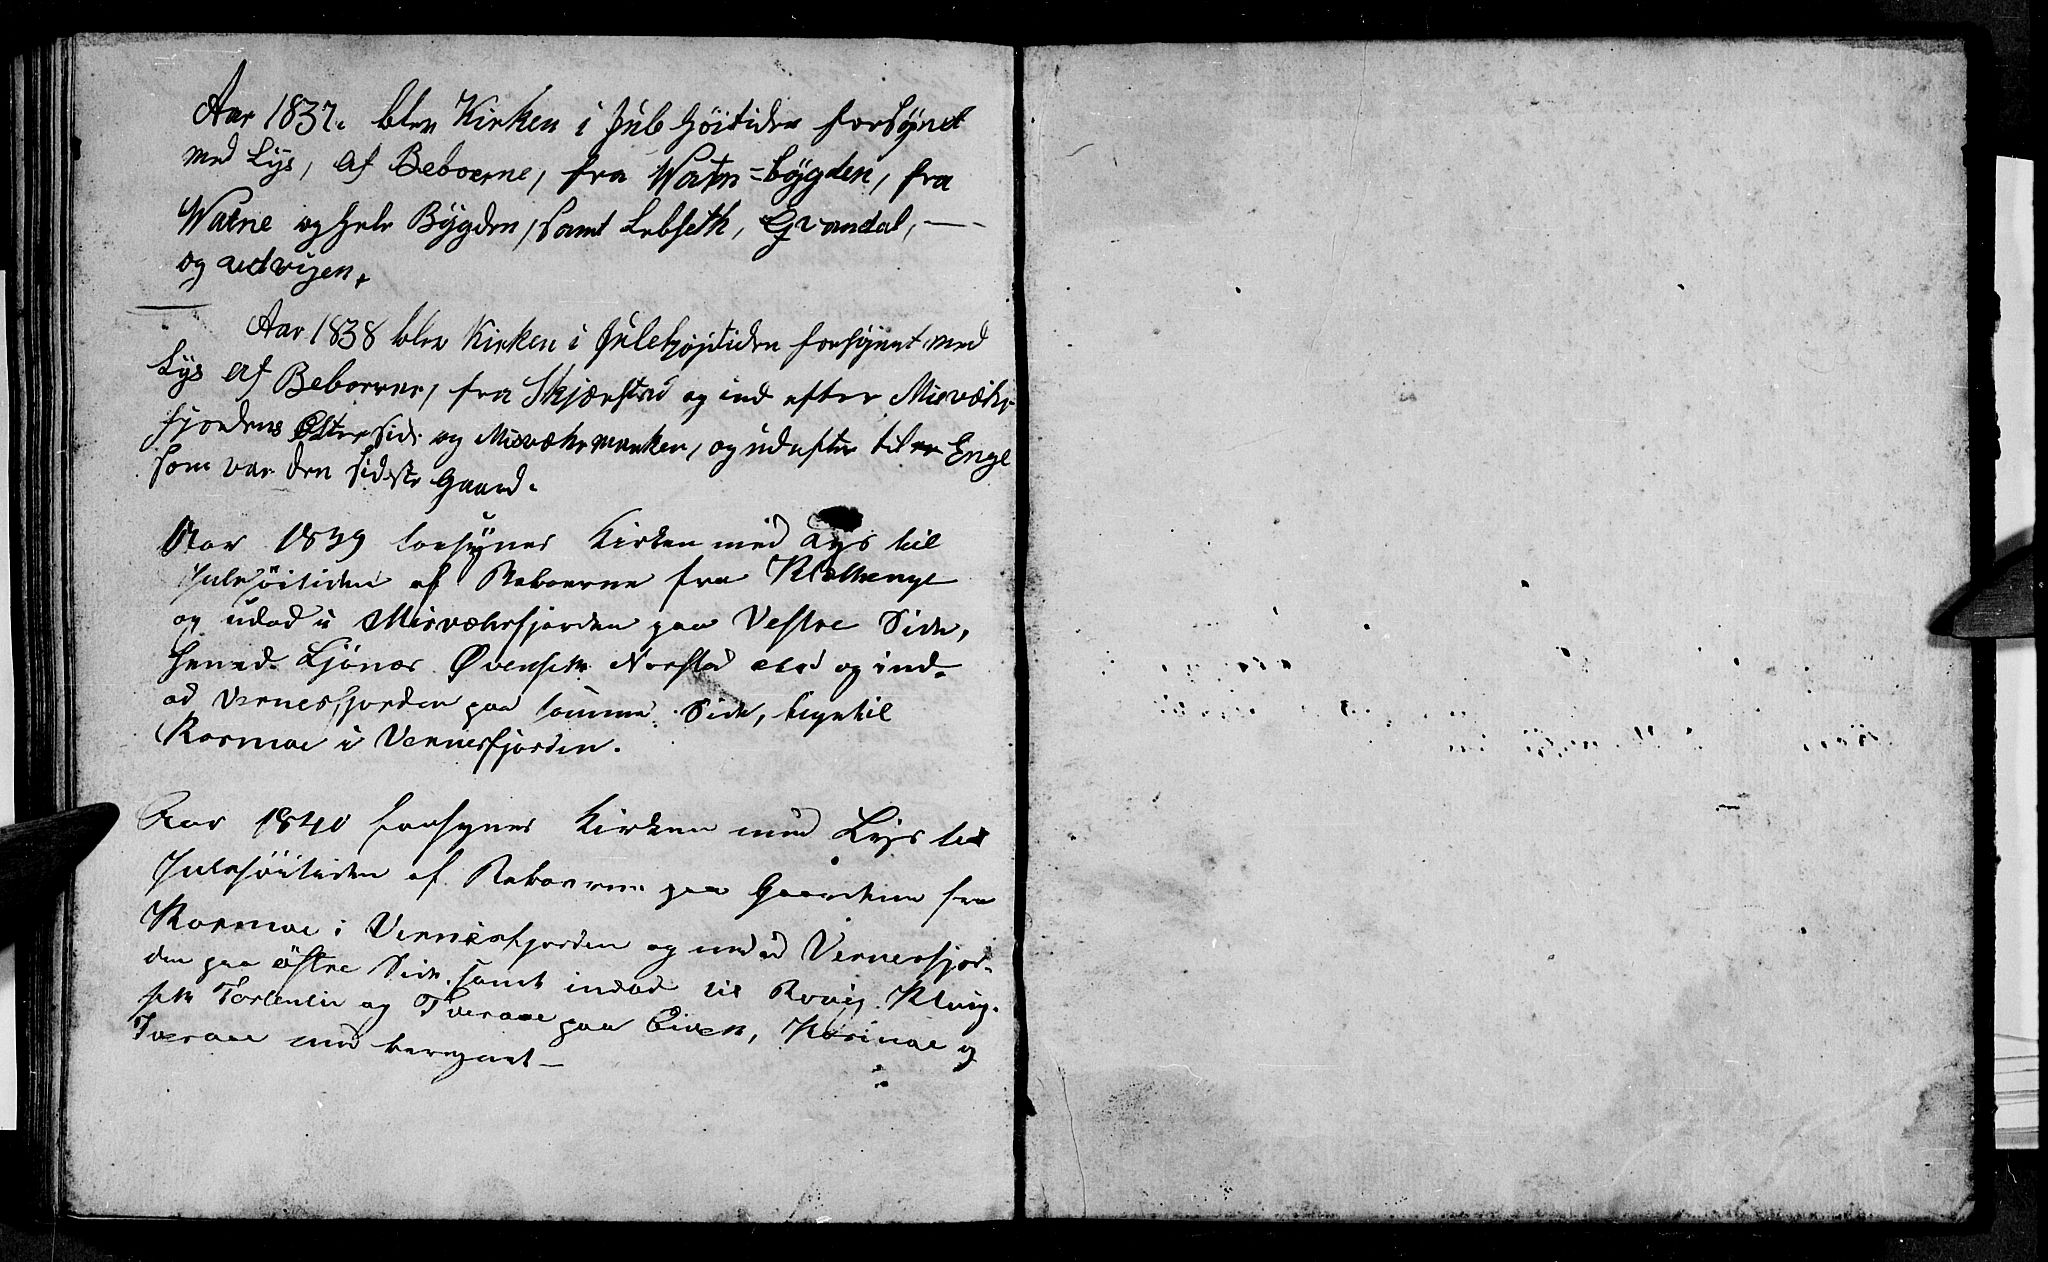 Aar 1837. blev Kirken i Jule Høitiden forsÿnet
med Lys, af Beboerne, fra Watn-bÿgden, fra
Watne og hele Bÿgden, samt Lebseth, Grandal,
og advigen.
Aar 1838 blev Kirken i Julehøjtiden forsynet med
Lys af Beboerne, fra Skjærstad og ind efter Misvær-
fjordens Østerside og Misværmarken, og udefter til Enge
som var den sidste Gaard.
Aar 1839 forsÿnes Kirken med Lys til
Julehøitiden af Beboerne fra
og udad i Misværfjorden paa Vestre Side,
Ljønes Øvenseth Norstad og ind-
ad Vernesfjorden paa samme Side, til
Kosmoe i Vernesfjorden.
Aar 1840 forsynes Kirken med Lys til
Julehøitiden af Beboerne paa Gaardene fra
Kosmoe i Vernesfjorden og udad Vernesfjor-
den paa østre Side, samt indad til
og Tveraae paa Eiven, Kosmoe og
Tveraae